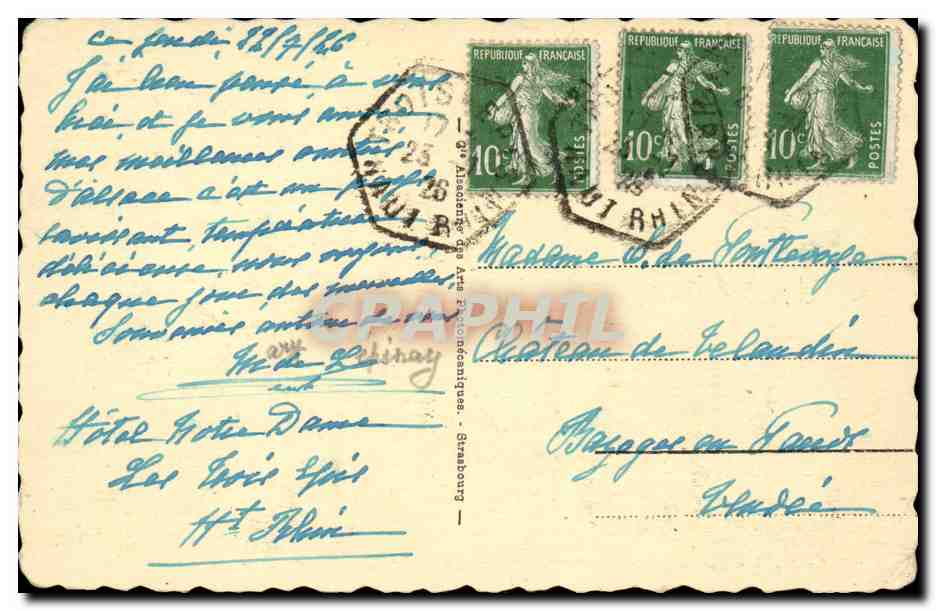 ce jeudi 22/7/26
J'ai bien pensé à vous
et je vous envoie
mes meilleures amitiés
D'alsace c'est un
ravissant, température
délicieuse, nous voyons
chaque jour des merveilles
Souvenirs autour de vous
M de L
ary épinay
Hôtel Notre Dame
Les Trois Epis
Ht Rhin
Cie Alsacienne des Arts Photomécaniques. - Strasbourg
REPUBLIQUE FRANÇAISE
10c POSTES
REPUBLIQUE FRANÇAISE
10c POSTES
REPUBLIQUE FRANÇAISE
10c POSTES
TROIS
23
26
HAUT RHIN
HAUT RHIN
CPARPHIL
Madame de
Château de
Bazoges en Pareds
Vendée